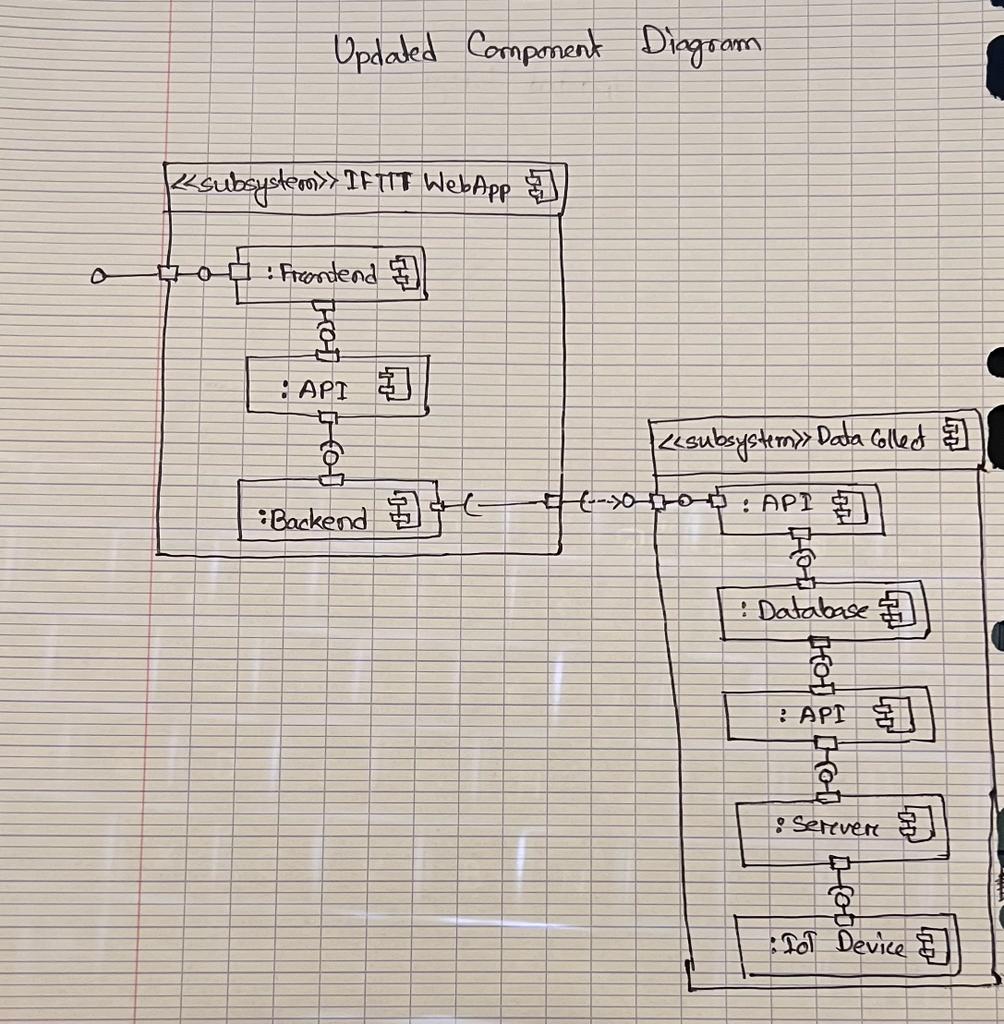 Updated Component Diagram
<<subsystem>> IFTTT WebApp
:Frontend
: API
:Backend
<<subsystem>> Data Collect
: API
: Database
: API
: Server
:IoT Device